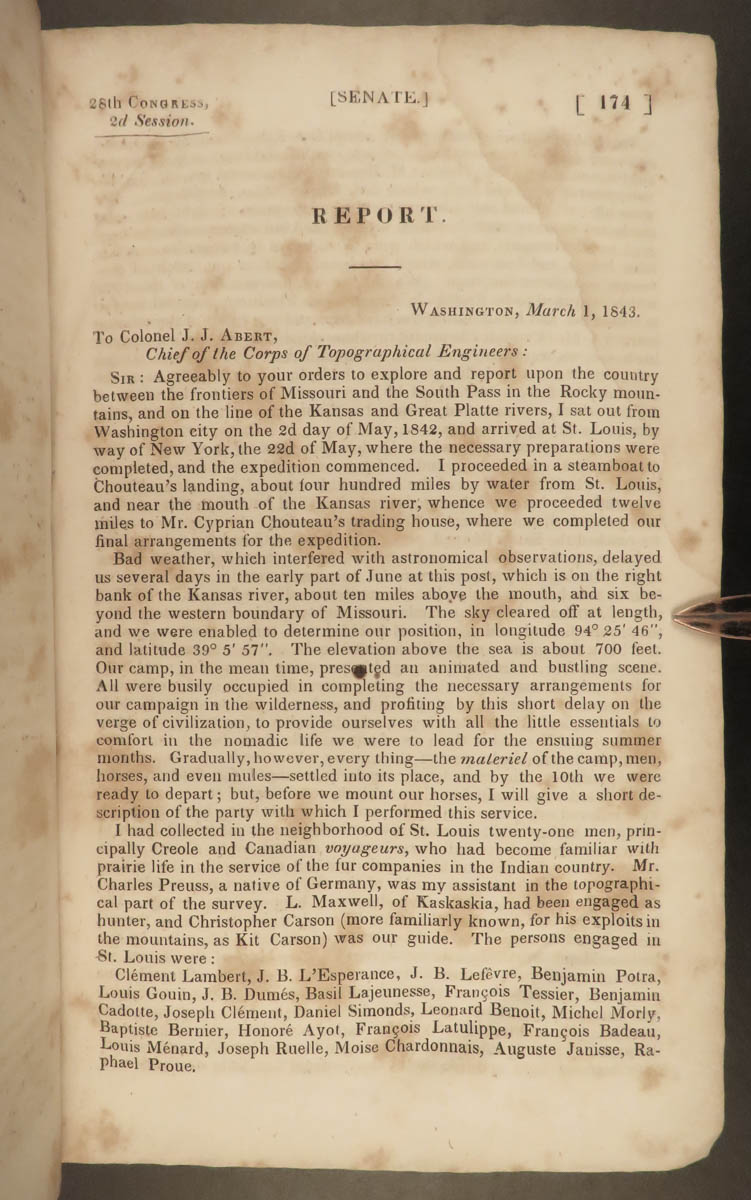 28th CONGRESS,
2d Session.
[SENATE.]
[ 174 ]
REPORT.
WASHINGTON, March 1, 1843.
To Colonel J. J. ABERT,
Chief of the Corps of Topographical Engineers :
SIR : Agreeably to your orders to explore and report upon the country
between the frontiers of Missouri and the South Pass in the Rocky moun-
tains, and on the line of the Kansas and Great Platte rivers, I sat out from
Washington city on the 2d day of May, 1842, and arrived at St. Louis, by
way of New York, the 22d of May, where the necessary preparations were
completed, and the expedition commenced. I proceeded in a steamboat to
Chouteau's landing, about four hundred miles by water from St. Louis,
and near the mouth of the Kansas river, whence we proceeded twelve
miles to Mr. Cyprian Chouteau's trading house, where we completed our
final arrangements for the expedition.
Bad weather, which interfered with astronomical observations, delayed
us several days in the early part of June at this post, which is on the right
bank of the Kansas river, about ten miles above the mouth, and six be-
yond the western boundary of Missouri. The sky cleared off at length,
and we were enabled to determine our position, in longitude 94° 25' 46",
and latitude 39° 5' 57". The elevation above the sea is about 700 feet.
Our camp, in the mean time, presented an animated and bustling scene.
All were busily occupied in completing the necessary arrangements for
our campaign in the wilderness, and profiting by this short delay on the
verge of civilization, to provide ourselves with all the little essentials to
comfort in the nomadic life we were to lead for the ensuing summer
months. Gradually, however, every thing—the materiel of the camp, men,
horses, and even mules—settled into its place, and by the 10th we were
ready to depart ; but, before we mount our horses, I will give a short de-
scription of the party with which I performed this service.
I had collected in the neighborhood of St. Louis twenty-one men, prin-
cipally Creole and Canadian voyageurs, who had become familiar with
prairie life in the service of the fur companies in the Indian country. Mr.
Charles Preuss, a native of Germany, was my assistant in the topographi-
cal part of the survey. L. Maxwell, of Kaskaskia, had been engaged as
hunter, and Christopher Carson (more familiarly known, for his exploits in
the mountains, as Kit Carson) was our guide. The persons engaged in
St. Louis were :
Clément Lambert, J. B. L'Esperance, J. B. Lefèvre, Benjamin Potra,
Louis Gouin, J. B. Dumés, Basil Lajeunesse, François Tessier, Benjamin
Cadotte, Joseph Clément, Daniel Simonds, Leonard Benoit, Michel Morly,
Baptiste Bernier, Honoré Ayot, François Latulippe, François Badeau,
Louis Ménard, Joseph Ruelle, Moise Chardonnais, Auguste Janisse, Ra-
phael Proue.